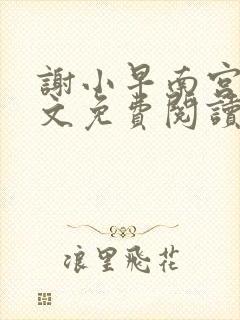 謝小早南宮
文免費閱讀
浪里飛花